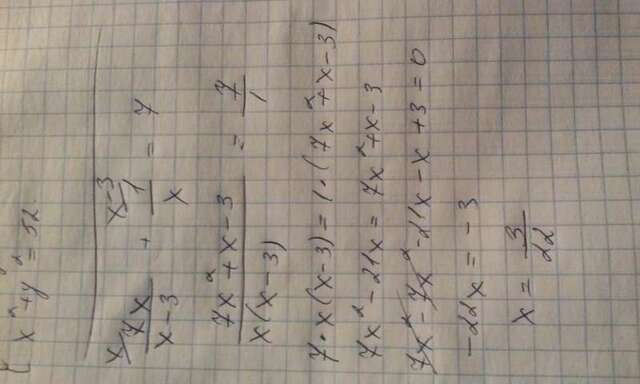 { x² + y² = 52
x/ 7x/(x-3) + x-3/ 1/x = 7
(7x² + x - 3)/(x(x-3)) = 7/1
7·x(x-3) = 1·(7x² + x - 3)
7x² - 21x = 7x² + x - 3
7x² - 7x² - 21x - x + 3 = 0
-22x = -3
x = 3/22